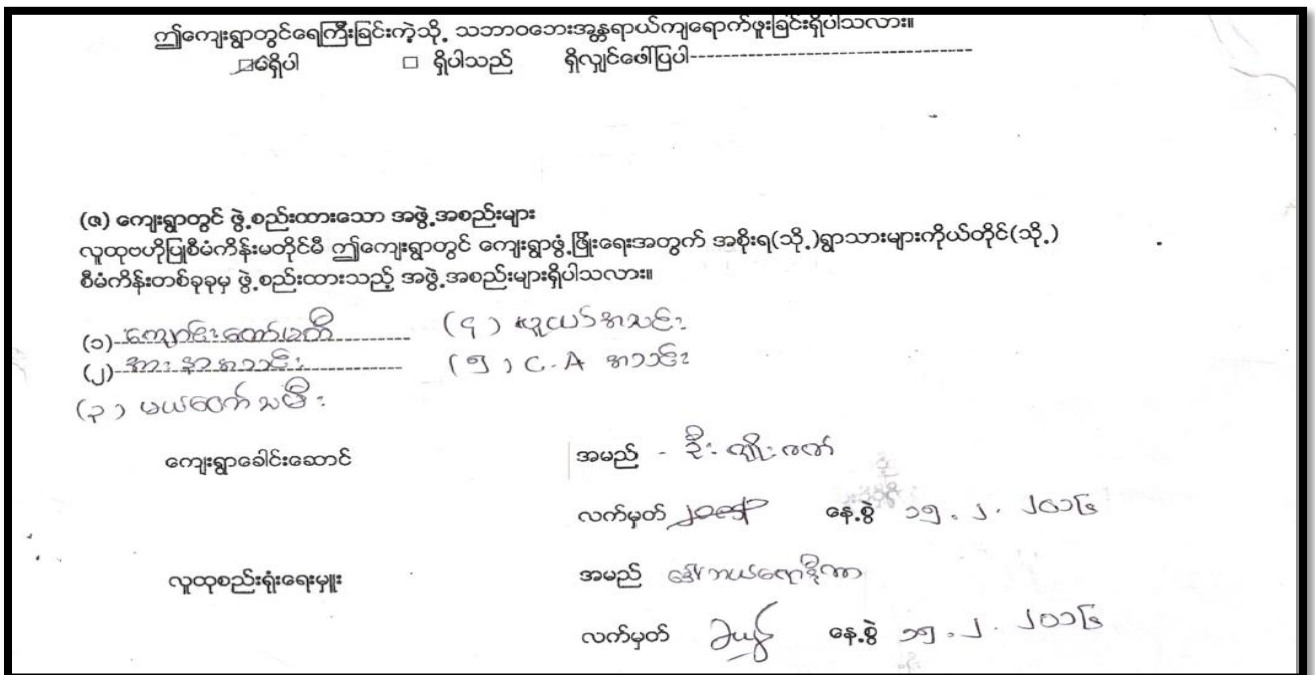 ဤကျေးရွာတွင်ရေကြီးခြင်းကဲ့သို့ သဘာဝဘေးအန္တရာယ်ကျရောက်ဖူးခြင်းရှိပါသလား။
□မရှိပါ □ ရှိပါသည် ရှိလျှင်ဖေါ်ပြပါ-----------------------------------
(ဇ) ကျေးရွာတွင် ဖွဲ့စည်းထားသော အဖွဲ့အစည်းများ
လူထုဗဟိုပြုစီမံကိန်းမတိုင်မီ ဤကျေးရွာတွင် ကျေးရွာဖွံ့ဖြိုးရေးအတွက် အစိုးရ(သို့)ရွာသားများကိုယ်တိုင်(သို့)
စီမံကိန်းတစ်ခုခုမှ ဖွဲ့စည်းထားသည့် အဖွဲ့အစည်းများရှိပါသလား။
(၁) ကျောင်းကော်မတီ (၄) လူငယ်အသင်း
(၂) သားနာအသင်း (၅) C.A အသင်း
(၃)
ကျေးရွာခေါင်းဆောင် အမည် - ဦး
လက်မှတ် နေ့စွဲ ၁၅.၂.၂၀၁၆
လူထုစည်းရုံးရေးမှူး အမည် ဒေါ်
လက်မှတ် နေ့စွဲ ၁၅.၂.၂၀၁၆